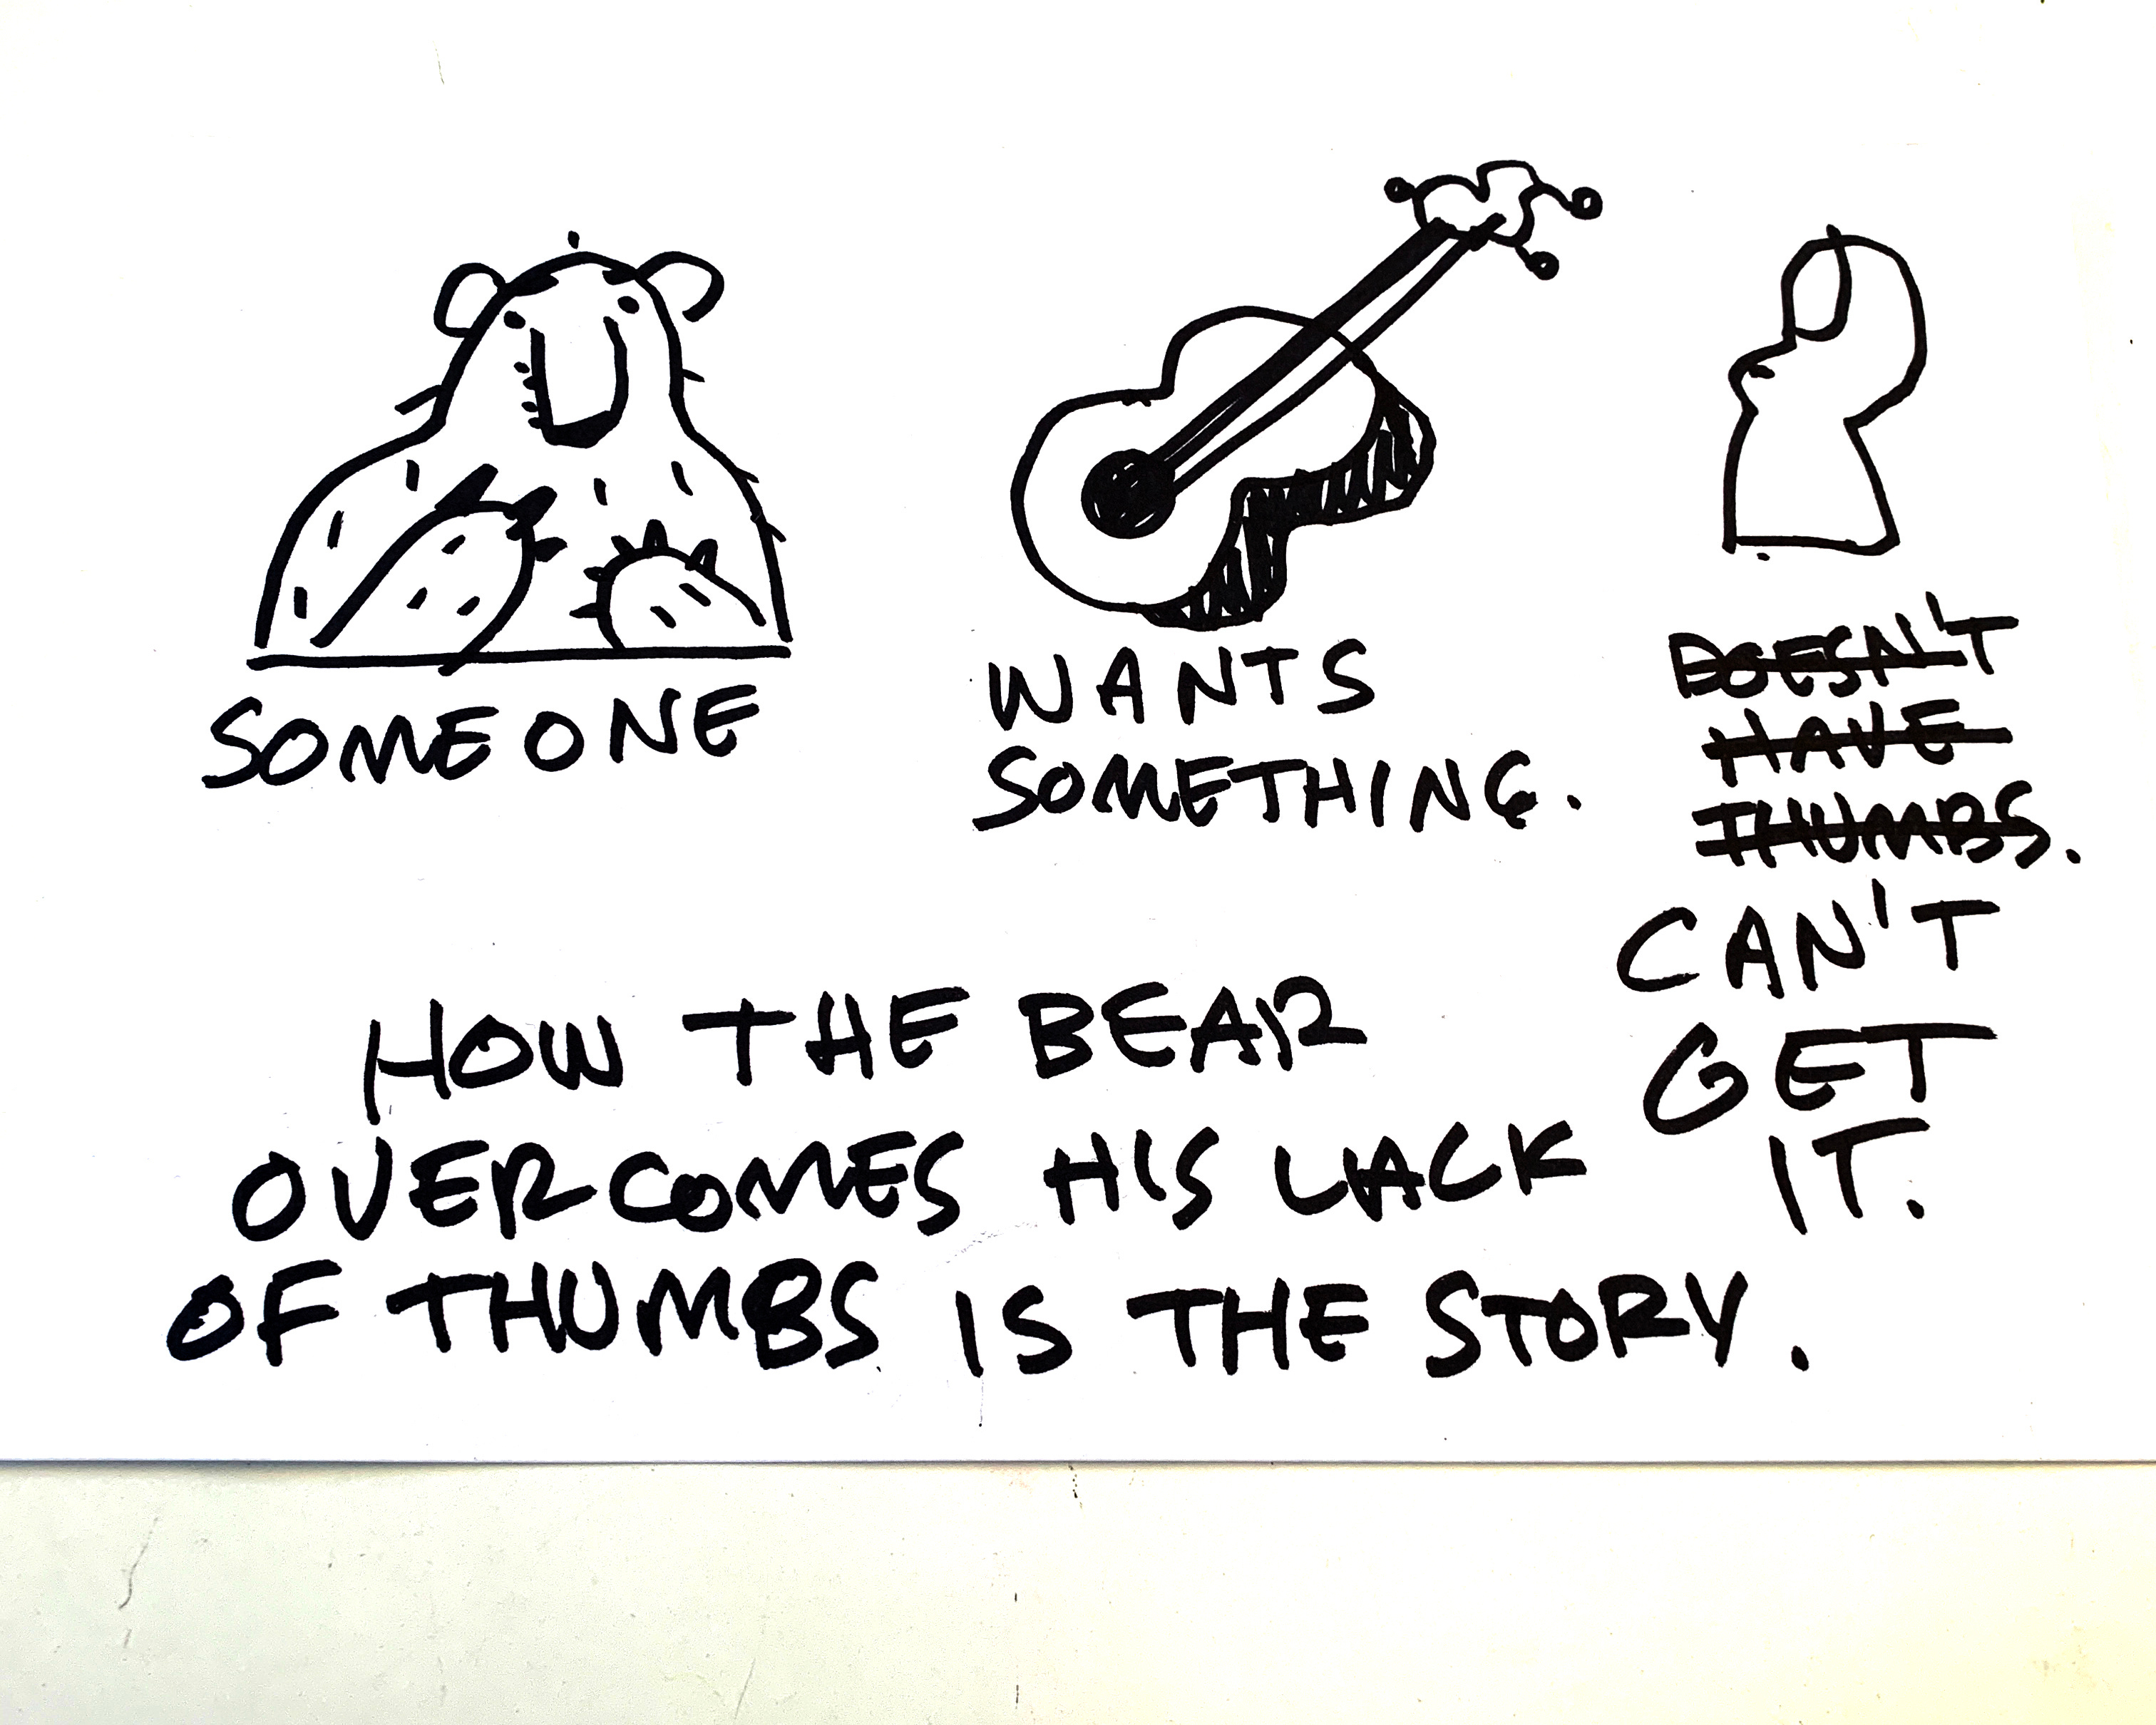 SOMEONE
WANTS
SOMETHING.
DOESN'T
HAVE
THUMBS.
CAN'T
GET
IT.
HOW THE BEAR
OVERCOMES HIS LACK
OF THUMBS IS THE STORY.